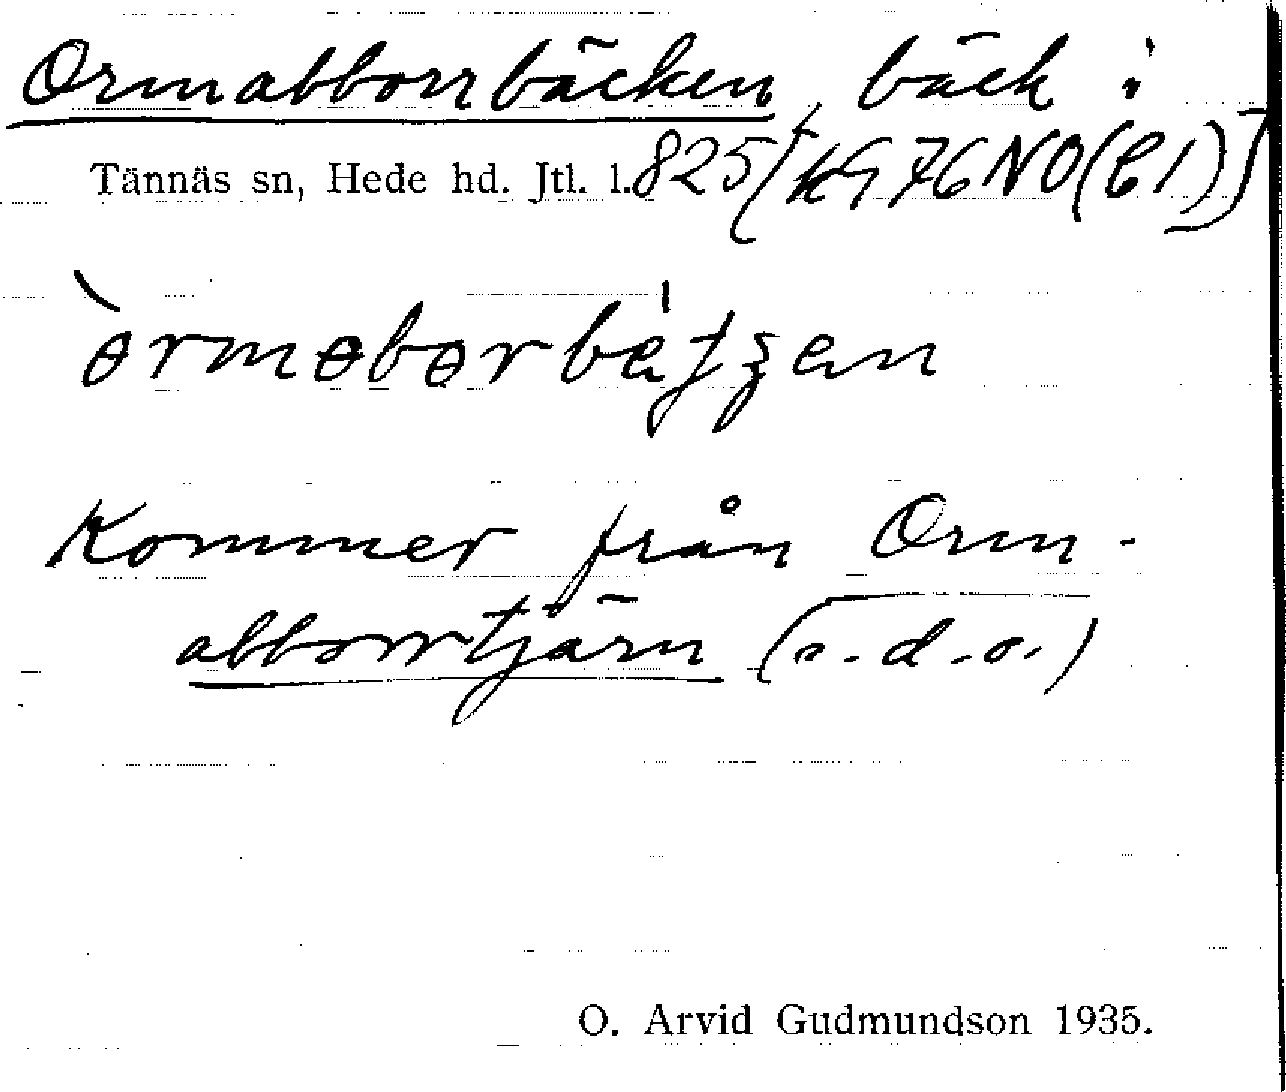 Ormabborrbäcken, bäck i
Tännäs sn, Hede hd. Jtl. l. 825 [KG 76 NO (C1)]
Kommer från Orm-
abborrtjärn (s.d.o.)
O. Arvid Gudmundson 1935.